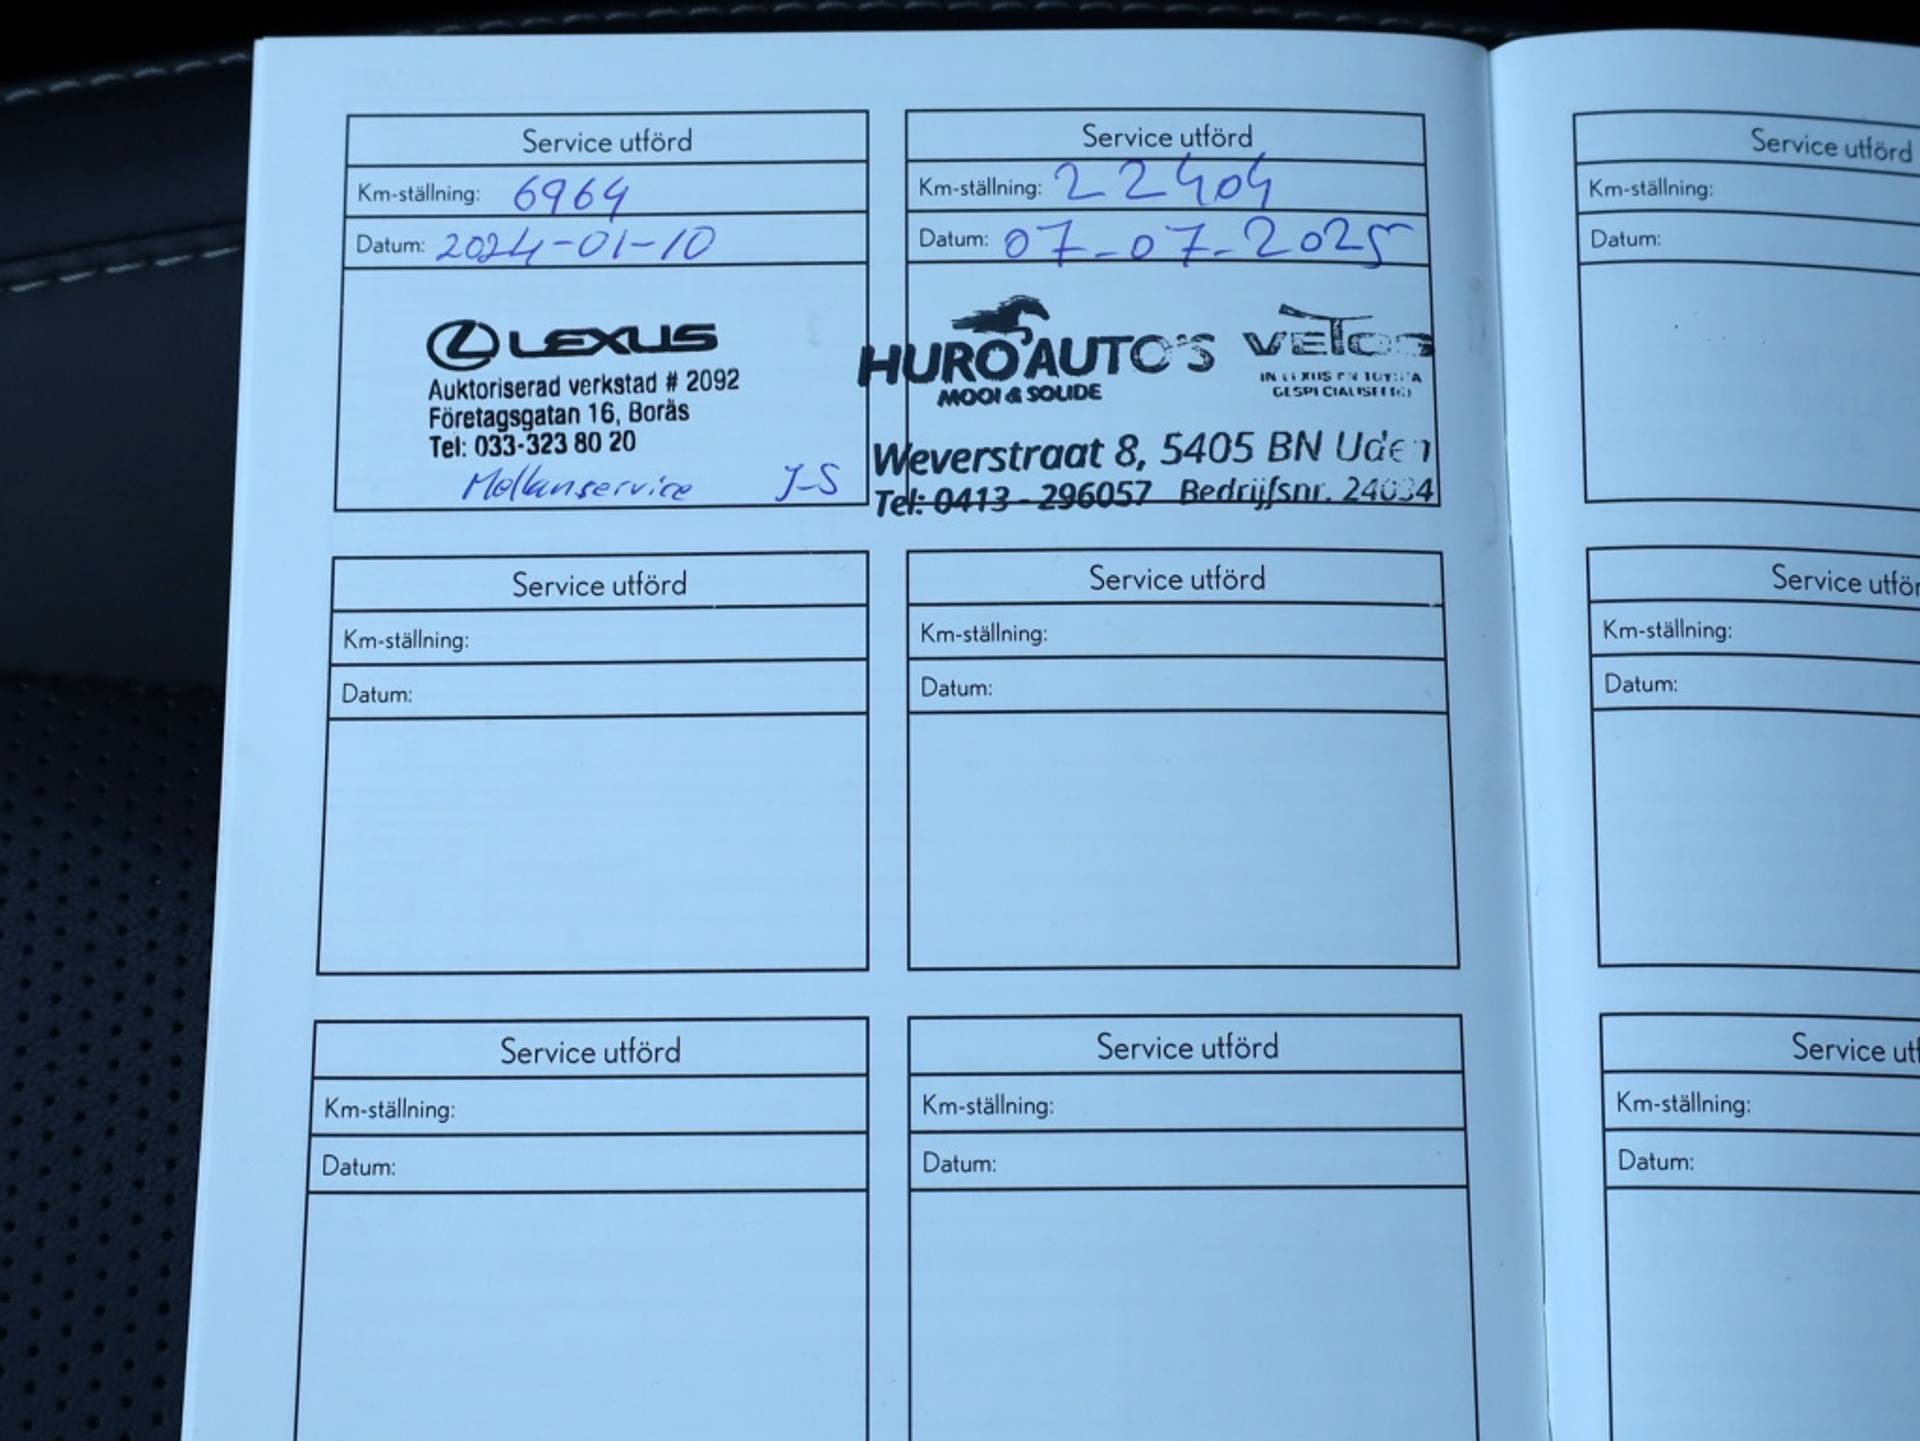 Service utförd
Km-ställning: 6964
Datum: 2024-01-10
LEXUS
Auktoriserad verkstad # 2092
Företagsgatan 16, Borås
Tel: 033-323 80 20
Mellanservice J-S
Service utförd
Km-ställning: 22404
Datum: 07-07-2025
HURO AUTO'S
MOOI & SOLIDE
VETOS
IN LEXUS EN TOYOTA
GESPECIALISEERD
Weverstraat 8, 5405 BN Uden
Tel: 0413 - 296057 Bedrijfsnr. 24034
Service utförd
Km-ställning:
Datum:
Service utförd
Km-ställning:
Datum:
Service utförd
Km-ställning:
Datum:
Service utförd
Km-ställning:
Datum:
Service utförd
Km-ställning:
Datum:
Service utför
Km-ställning:
Datum:
Service utf
Km-ställning:
Datum: